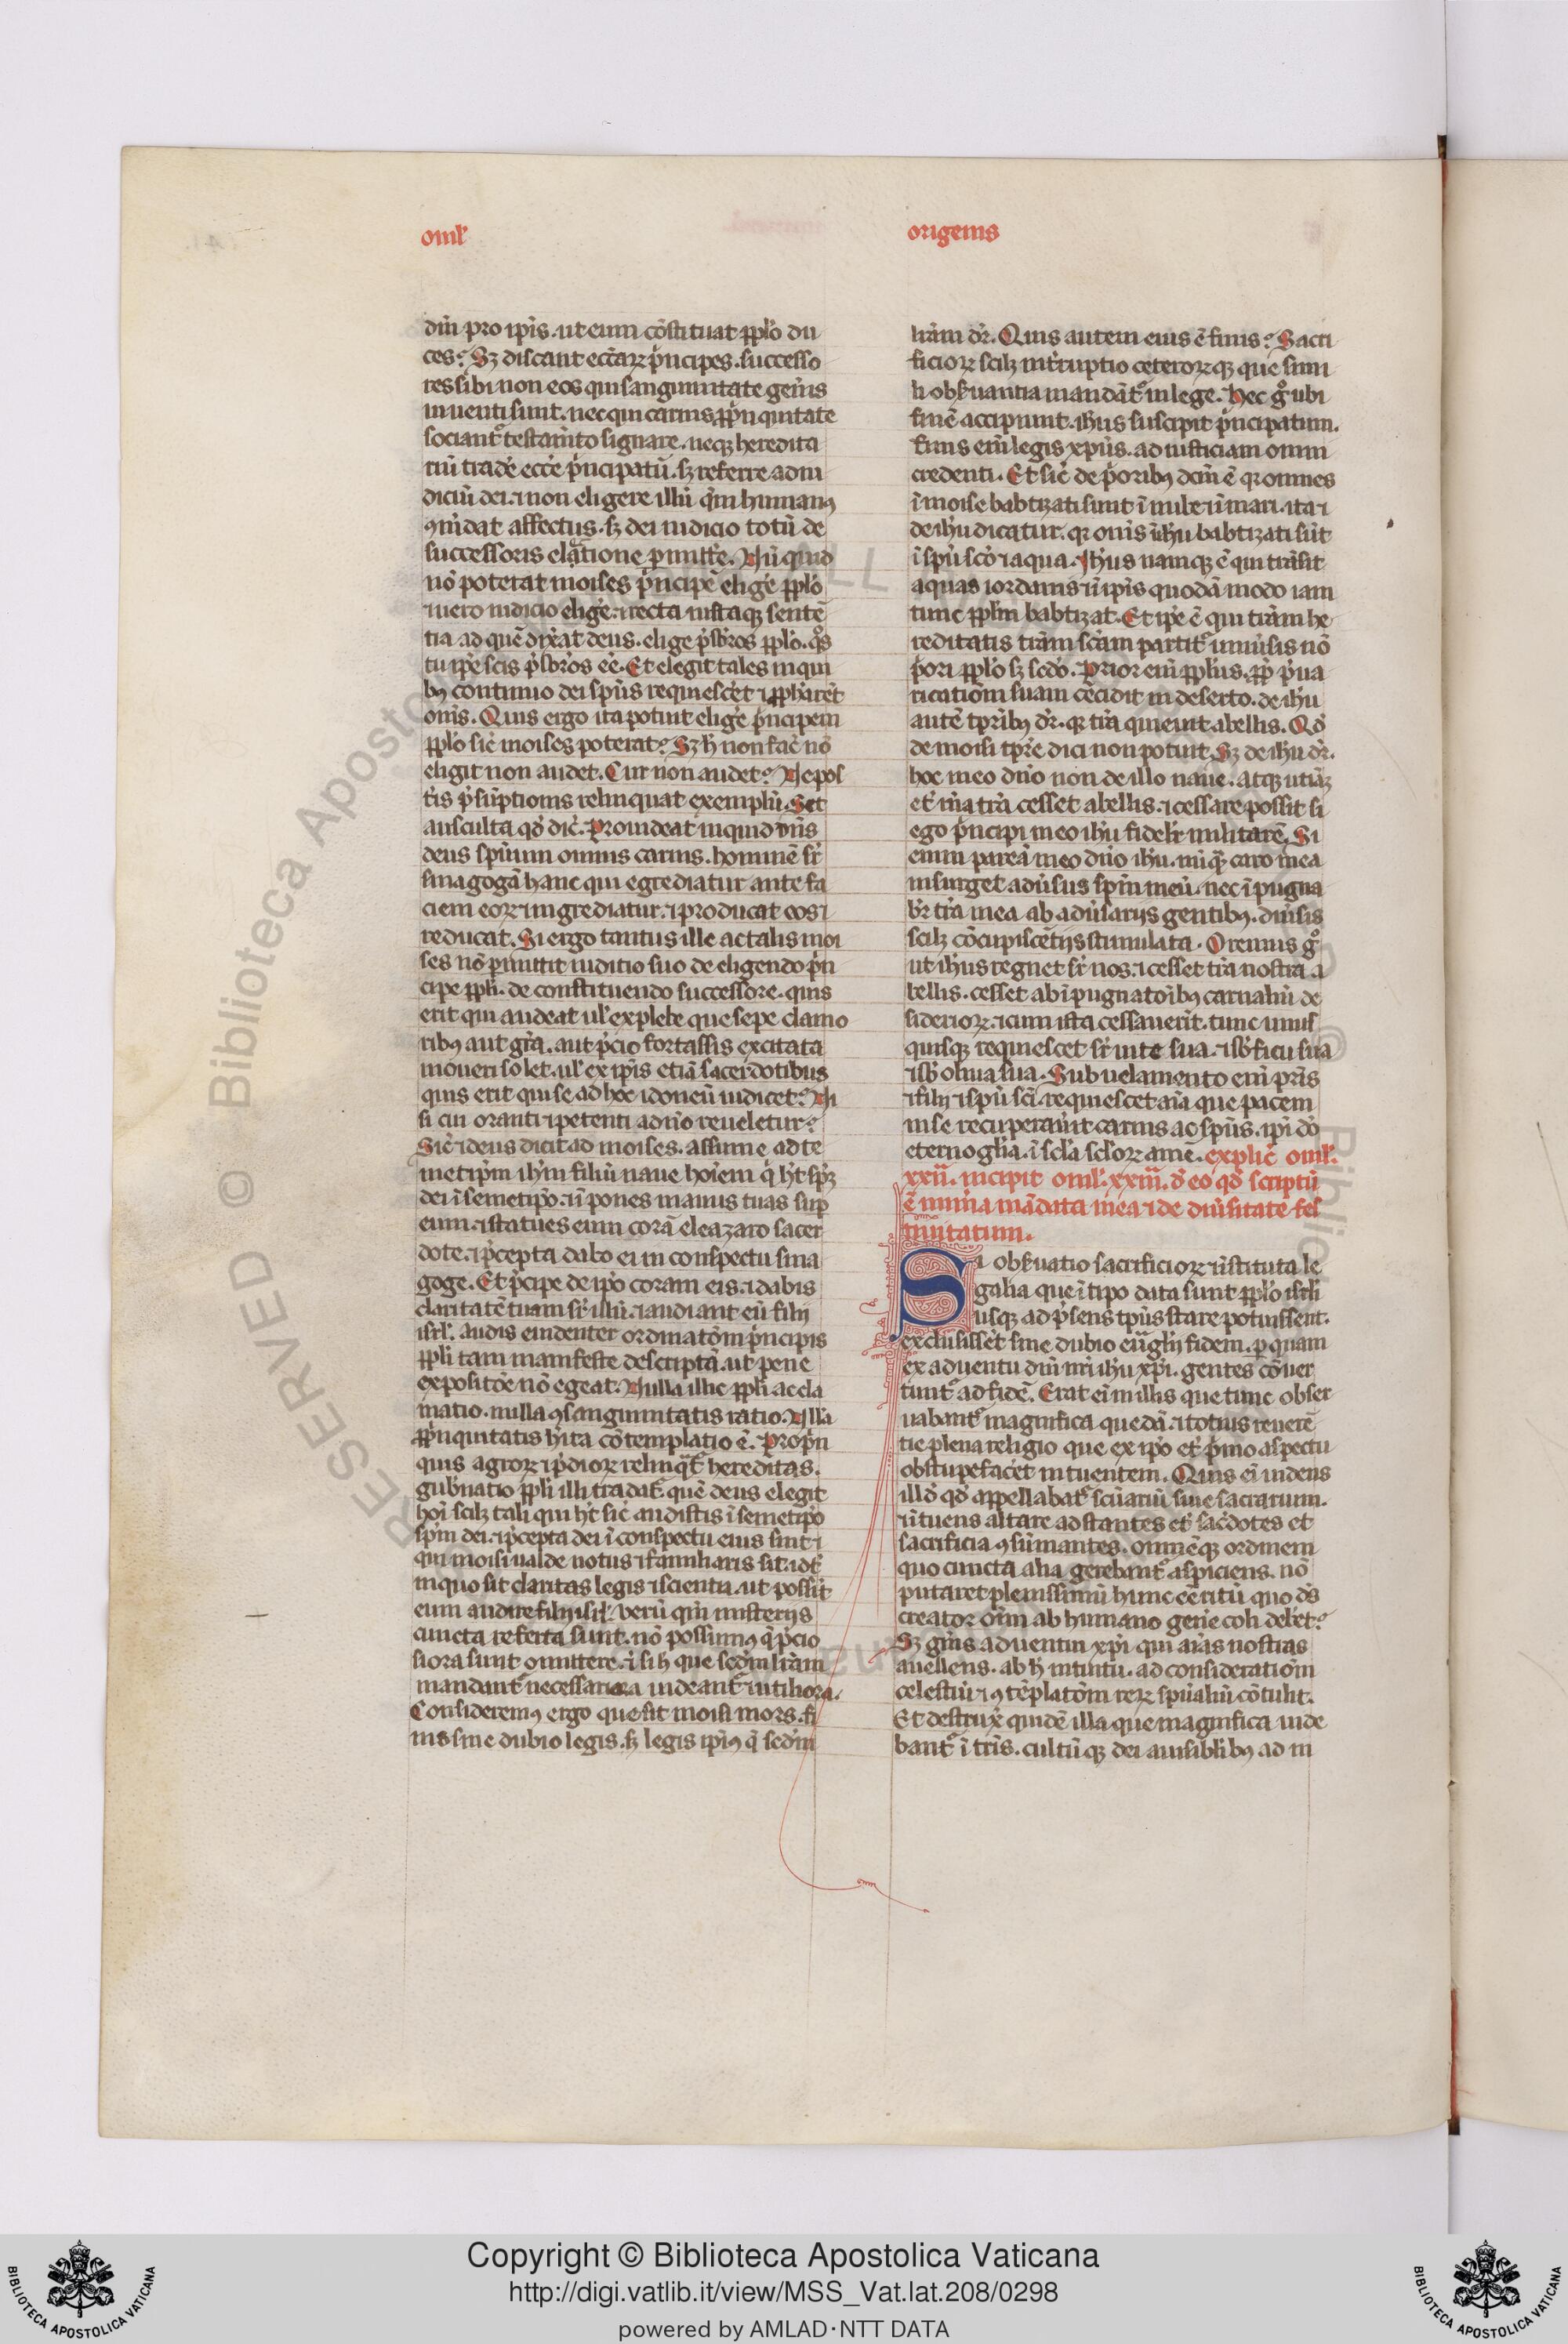 omł
origenis
dm̄ pro ip̄is. ut eum cōstituat pp̄lo du
ces? Sꝫ discant ecc̄arꝝ p̄ncipes. successo
res sibi non eos qui sanguinitate gen̄is
inuenti sunt. nec qui carnis ꝓp̄nquitate
sociant᷑ testam̄to signare. neqꝫ heredita
riū trad̄e ecc̄e p̄ncipatū. sꝫ referre ad iu
diciū dei. ⁊ non eligere illū q̄m humanꝰ
ꝯm̄dat affectus. sꝫ dei iudicio totū de
successoris elatione ꝑmitt̄e. Nū quid
nō poterat moises p̄ncipē eliḡe pp̄lo
⁊ uero iudicio eliḡe. ⁊ recta iustaqꝫ sentē
tia ad quē dix̄at deus. elige p̄sb̄ros pp̄lo. q̊s
tu ip̄e scis p̄sb̄ros eē. Et elegit tales in qui
bꝰ continuo dei sp̄us requiesc̄et ⁊ ꝓph̄ar̄et
om̄s. Quis ergo ita potuit eliḡe p̄ncipem
pp̄lo sic̄ moises poterat? Sꝫ h̄ non fac̄ nō
eligit non audet. Cur non audet? Ne pos
t̄is p̄sūptionis relinquat exemplū. Set
ausculta qd̄ dic̄. Prouideat inquid dn̄s
deus sp̄uum omnis carnis. hominē sr̄
sinagogā hanc qui egrediatur ante fa
ciem eorꝝ ⁊ ingrediatur. ⁊ producat eos ⁊
reducat. Si ergo tantus ille ac talis moi
ses nō ꝑmittit iuditio suo de eligendo p̄n
cipe pp̄li. de constituendo successore. quis
erit qui audeat ul̄ ex plebe que sepe clamo
ribꝰ aut gr̄a. aut p̄cio fortassis excitata
moueri solet. ul̄ ex ip̄is etiā sacerdotibus
quis erit qui se ad hoc idoneū iudicet? Ni
si cui oranti ⁊ petenti a dn̄o reueletur?
Sic̄ ⁊ deus dicit ad moises. assume ad te
met ip̄m ih̄m filiū naue hoi᷑em q̄ h̄t sp̄ꝫ
dei ī semetip̄o. ⁊ ī pones manus tuas suꝑ
eum. ⁊ statues eum corā eleazaro sacer
dote. ⁊ p̄cepta dabo ei in conspectu sina
goge. Et p̄cipe de ip̄o coram eis. ⁊ dabis
claritatē tuam sr̄ illū. ⁊ audiant eū filij
isrl̄. audis euidenter ordinatōm p̄ncipis
pp̄li tam manifeste descriptā. ut pene
expositōe nō egeat. Nulla illic pp̄li accla
matio. nulla ꝯsanguinitatis ratio. Null̄a
ꝓp̄nquitatis h̄ita cōtemplatio ē. Prop̄n
quis agrorꝝ ⁊ p̄diorꝝ relinq̄t᷑ hereditas.
gub̄natio pp̄li illi tradat᷑ quē deus elegit
hoī scilꝫ tali qui h̄t sic̄ audistis ī semetip̄o
sp̄m dei. ⁊ p̄cepta dei ī conspectu eius sint ⁊
qui moisi ualde notus ⁊ familiaris sit. id ē
in quo sit claritas legis ⁊ scientia. ut possit
eum audire filij isrl̄. uerū qm̄ misterijs
cuncta referta sunt. nō possumꝰ q̄ p̄cio
siora sunt omittere. ⁊ si h̄ que sed̄m l̄ram
mandant᷑ necessaria uideant᷑ ⁊ utiliora.
Consideremꝰ ergo que sit moisi mors. fi
nis sine dubio legis. sꝫ legis ip̄iꝰ q̄ sed̄m
l̄ram dr̄. Quis autem eius ē finis? Sacri
ficiorꝝ scilꝫ int̄ruptio ceterorꝝqꝫ que simi
li obs̄uantia mandāt᷑ in lege. Hec g̊ ubi
finē accipiunt. ih̄us suscipit p̄ncipatum.
finis eni᷑ legis xp̄us. ad iusticiam omni
credenti. Et sic̄ de p̄oribꝰ dcm̄ ē qr omnes
ī moise babtizati sunt ī nube ⁊ ī mari. ita ⁊
de ih̄u dicatur. qr om̄s ī ih̄u babtizati sūt
ī sp̄u sc̄o ⁊ aqua. Ih̄us namqꝫ ē qui trāsit
aquas iordanis ⁊ ī ip̄is quodā modo iam
tunc pp̄lm babtizat. Et ip̄e ē qui t̄ram he
reditatis t̄ram sc̄am partit᷑ uniu̓sis nō
p̄ori pp̄lo sꝫ sc̄do. Prior eni᷑ pp̄lus. ꝓp̄ p̄ua
ricatiōm suam cecidit in deserto. de ih̄u
autē tp̄ribꝰ dr̄. qr t̄ra quieuit a bellis. Qd̄
de moisi tp̄re dici non potuit. Sꝫ de ih̄u dr̄.
hoc meo dn̄o non de illo naue. atqꝫ utīaꝫ
et m̄a t̄ra cesset a bellis. ⁊ cessare possit si
ego p̄ncipi meo ih̄u fidelit᷑ militarē. Si
enim pareā meo dn̄o ih̄u. nūq̄ caro mea
insurget adu̓sus sp̄m meū. nec ī pugna
bit᷑ t̄ra mea ab adu̓sarijs gentibꝰ. diu̓sis
scilꝫ cōcupiscētijs stimulata. Oremus g̊
ut ih̄us regnet sr̄ nos. ⁊ cesset t̄ra nostra a
bellis. cesset ab ī pugnatoībꝰ carnaliū de
sideriorꝝ. ⁊ cum ista cessauerīt. tunc unus
quisqꝫ requiescet sr̄ uite sua. ⁊ sb̄ ficu sua
⁊ sb̄ oliua sua. Sub uelamento eni᷑ pr̄is
⁊ filij ⁊ sp̄u sc̄i. requiescet aīa que pacem
in se recuperau̓it carnis ac sp̄us. ip̄i d̄o
eterno gl̄ia. ī sc̄la sc̄lorꝝ amē. explic̄ omł.
xxii. incipit omł. xxiii. d̄ eo qd̄ scriptū
ē mun̄a mādata mea ⁊ de diu̓sitate fes
tiuitatum.
Si obs̄uatio sacrificiorꝝ ⁊ īstituta le
galia que ī tipo data sunt pp̄lo isrl̄i
usqꝫ ad p̄sens tp̄us stare potuissent.
exclusissēt sine dubio eu̓glij fidem. ꝑ quam
ex aduentu dm̄ nr̄i ih̄u xp̄i. gentes cōuer
tunt᷑ ad fidē. Erat ei᷑ in illis que tunc obser
uabant᷑ magnifica quedā. ⁊ totius reuerē
tie plena religio que ex ip̄o et p̄mo aspectu
obstupefac̄et intuentem. Quis ei᷑ uidens
illd̄ qd̄ appellabat᷑ sc̄uariū siue sacrarium.
⁊ ītuens altare adstantes et sac̄dotes et
sacrificia ꝯsūmantes. omnēqꝫ ordinem
quo cuncta alia gerebant᷑ aspiciens. nō
putaret plenissimū hunc eē ritū quo ds̄
creator oīm ab humano gen̄e coli deb̄et?
Sꝫ gr̄as aduentui xp̄i qui aīas nostras
auellens. ab h̄ intuitu. ad consideratiōm
celestiū ⁊ ꝯtēplatōm rerꝝ sp̄ualiū cōtulit.
Et destrux̄ quidē illa que magnifica uide
bant᷑ ī t̄ris. cultūqꝫ dei a uisiblibꝰ ad in
Copyright © Biblioteca Apostolica Vaticana
http://digi.vatlib.it/view/MSS_Vat.lat.208/0298
powered by AMLAD·NTT DATA